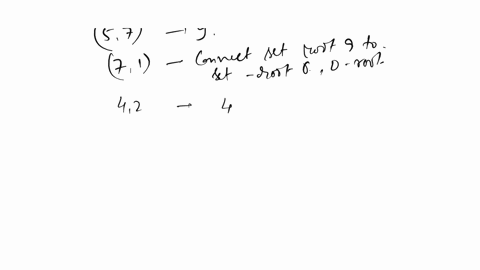 (5,7) → 9.
(7,1) — Connect set root 9 to
set -root 0, 0-root.
4,2 → 4